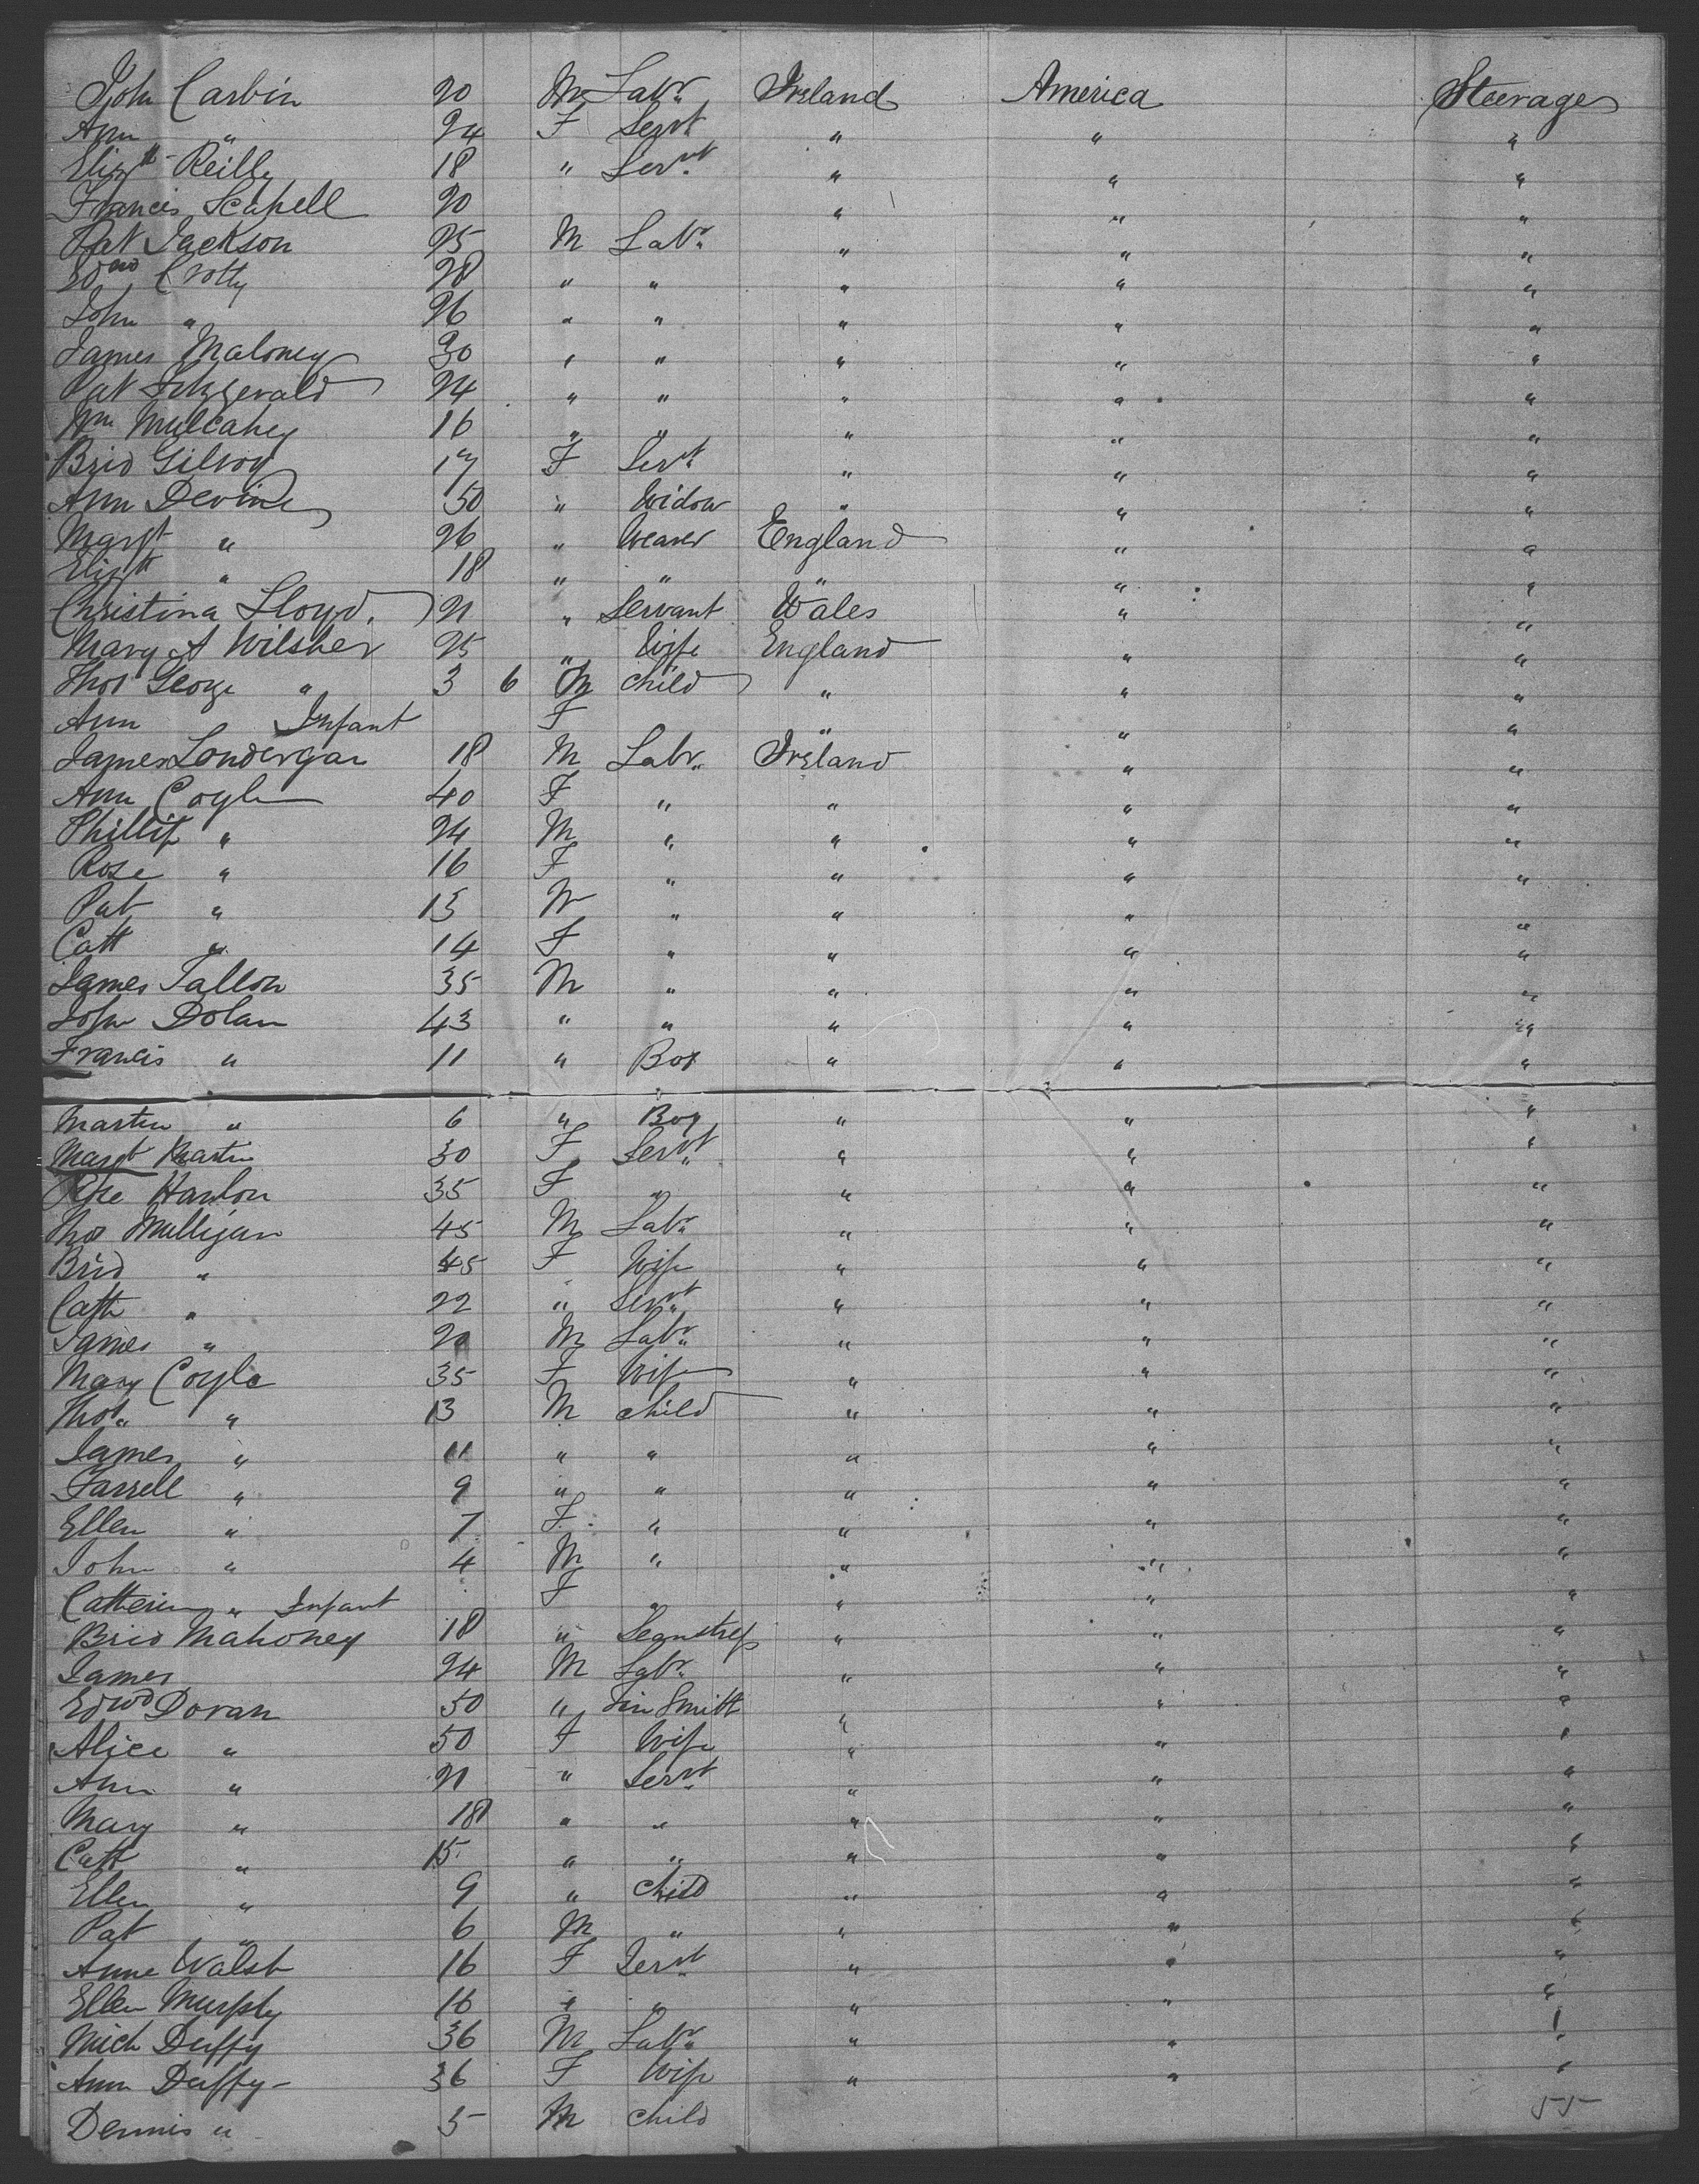 John Carbin 20 M Labr. Ireland America Steerage
Ann " 24 F Servt " " "
Elizth Reilly 18 " Servt " " "
Francis Scahell 20 " " "
Pat Jackson 25 M Labr. " " "
Edwd Crotty 28 " " " " "
John " 26 " " " " "
James Maloney 30 " " " " "
Pat Fitzgerald 24 " " " " "
Wm Mulcahey 16 " " " " "
Brid Gilroy 17 F Servt " " "
Ann Devine 50 " Widow " " "
Margt " 26 " Weaver England " "
Elizth " 18 " " " " "
Christina Lloyd. 21 " Servant Wales " "
Mary A Wilsher 25 " Wife England " "
Thos George " 3 6 M child " " "
Ann " Infant F " " "
James Londergan 18 M Labr. Ireland " "
Ann Coyle 40 F " " " "
Phillip " 24 M " " " "
Rose " 16 F " " " "
Pat " 13 M " " " "
Cath " 14 F " " " "
James Tallon 35 M " " " "
John Dolan 43 " " " " "
Francis " 11 " Boy " " "
Martin " 6 " Boy " " "
Margt Martin 30 F Servt " " "
Hanlon 35 F " " " "
Thos Mulligan 45 M Labr. " " "
Brid " 45 F Wife " " "
Cath " 22 " Servt " " "
James " 20 M Labr. " " "
Mary Coyle 35 F Wife " " "
Thos. " 13 M child " " "
James " 11 " " " " "
Farrell " 9 " " " " "
Ellen " 7 F " " " "
John " 4 M " " " "
Catherine " Infant F " " " "
Brid Mahoney 18 " Seamstress " " "
James 24 M Labr. " " "
Edwd Doran 50 " Tin Smith " " "
Alice " 50 F Wife " " "
Ann " 21 " Servt " " "
Mary " 18 " " " " "
Cath " 15 " " " " "
Ellen " 9 " child " " "
Pat " 6 M " " " "
Anne Walsh 16 F Servt " " "
Ellen Murphy 16 " " " " "
Mich Duffy 36 M Labr. " " "
Ann Duffy 36 F Wife " " "
Dennis " 5 M child 55